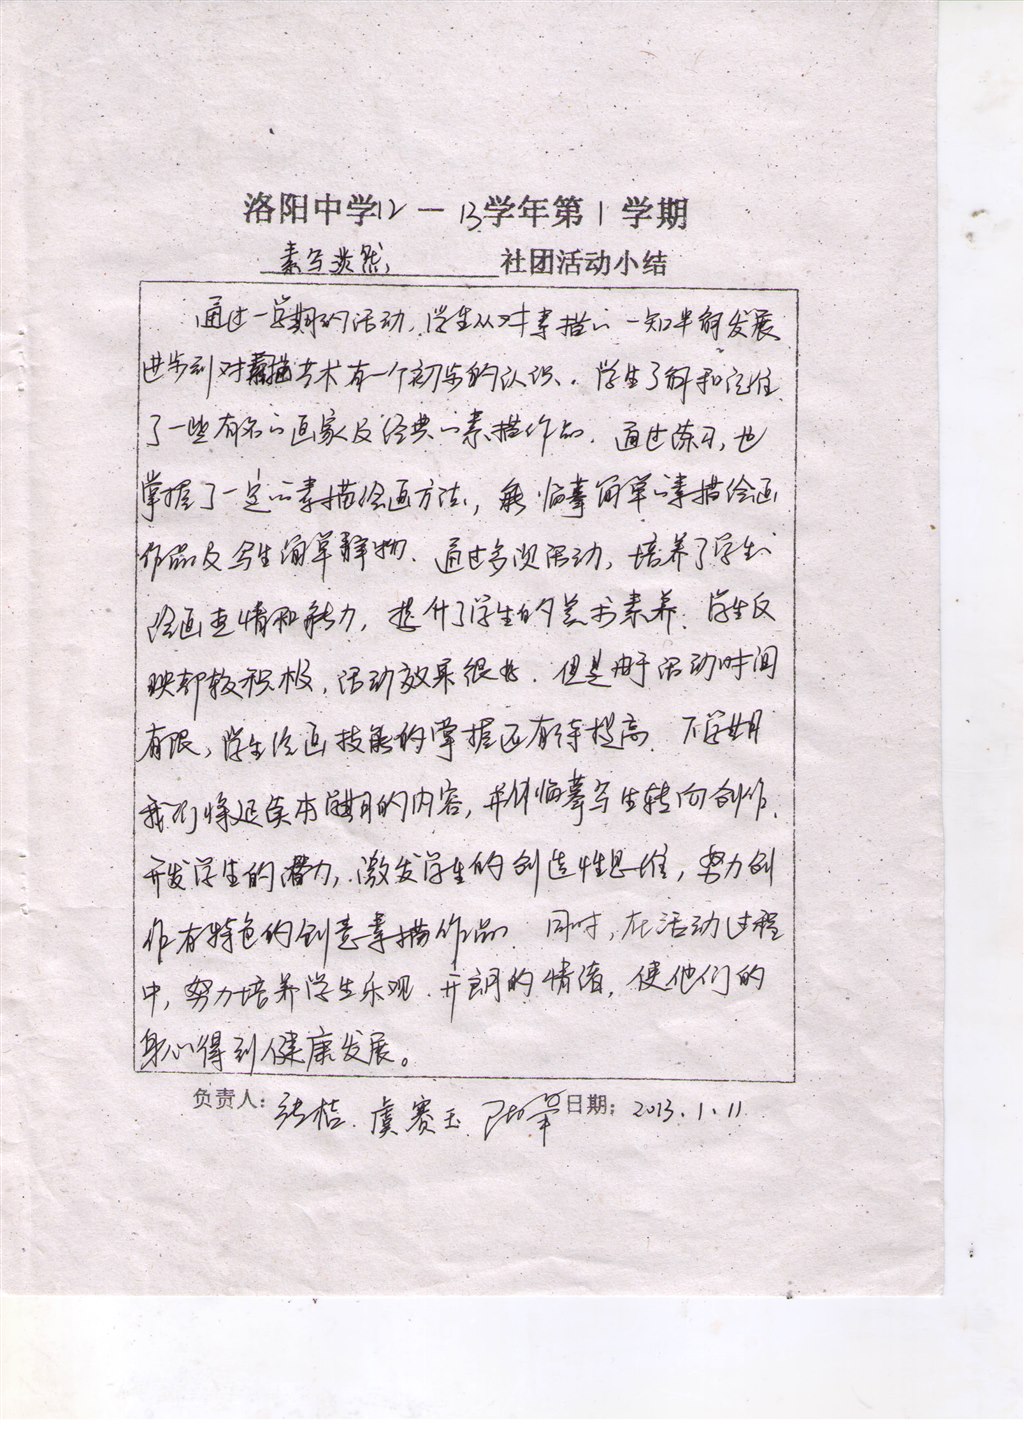 洛阳中学12－13学年第1学期
素写淡然 社团活动小结
通过一学期的活动,学生从对素描的一知半解发展
进步到对素描艺术有一个初步的认识.学生了解和记住
了一些有名的画家及经典的素描作品.通过练习,也
掌握了一定的素描绘画方法,能临摹简单的素描绘画
作品及写生简单静物.通过多次活动,培养了学生的
绘画热情和能力,提升了学生的艺术素养.学生反
映都较积极,活动效果很好.但是由于活动时间
有限,学生绘画技能的掌握还有待提高.下学期
我们将延续本学期的内容,并从临摹写生转向创作.
开发学生的潜力,激发学生的创造性思维,努力创
作有特色的创意素描作品.同时,在活动过程
中,努力培养学生乐观.开朗的情绪,使他们的
身心得到健康发展。
负责人: 张桔.虞赛玉. 日期: 2013.1.11